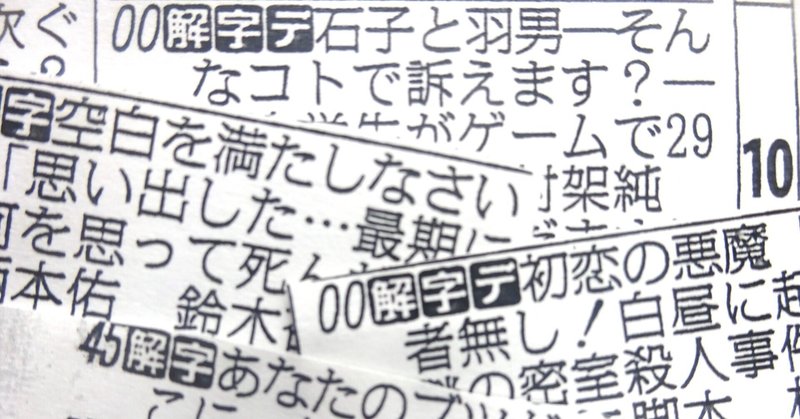 00解字デ石子と羽男―そん
なコトで訴えます?―
がゲームで29
10
架純
字空白を満たしなさい
「思い出した…最期に
を思って死ん
本佑 鈴木
00解字デ初恋の悪魔
者無し!白昼に起
の密室殺人事件
脚本
45解字あなたのブツ